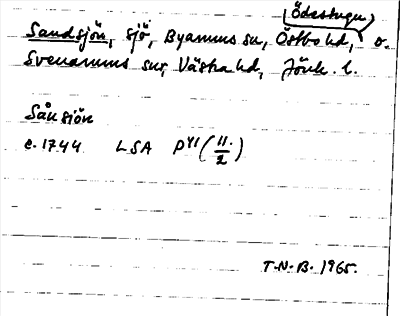 (Ödestugu)
Sandsjön, sjö, Byarums sn, Östbo hd, o.
Svenarums sn, Västra hd, Jönk. l.
Sånsjön
c. 1744 LSA P41 (11/2)
T.N.B. 1965.